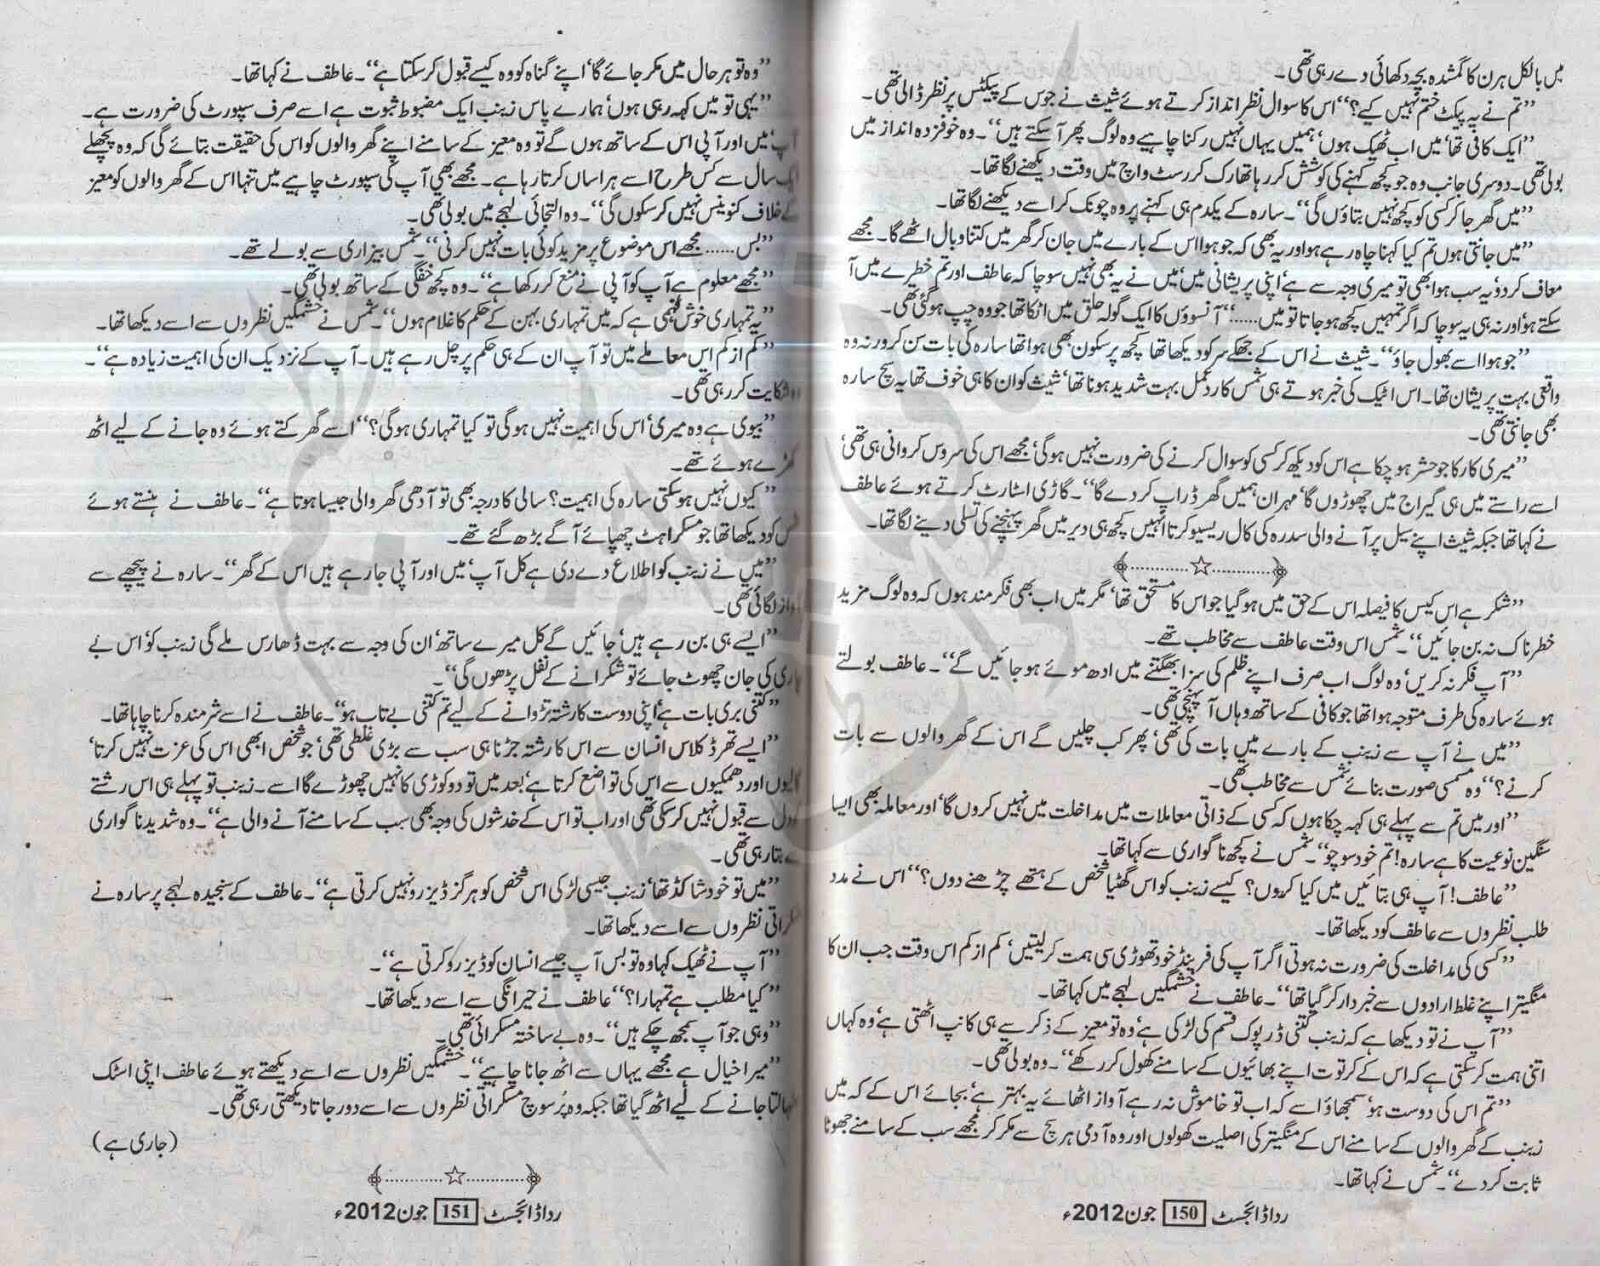 میں بالکل ہرن کا گمشدہ بچہ دکھائی دے رہی تھی۔
”تم نے یہ پیکٹ ختم نہیں کیے؟“ اس کا سوال نظر انداز کرتے ہوئے شیث نے جوس کے پیکٹس پر نظر ڈالی تھی۔
”ایک کافی تھا‘ میں اب ٹھیک ہوں‘ ہمیں یہاں نہیں رکنا چاہیے وہ لوگ پھر آسکتے ہیں“۔ وہ خوفزدہ انداز میں
بولی تھی۔ دوسری جانب وہ جو کچھ کہنے کی کوشش کر رہا تھا رک کر رسٹ واچ میں وقت دیکھنے لگا تھا۔
”میں گھر جا کر کسی کو کچھ نہیں بتاؤں گی“۔ سارہ کے یکدم ہی کہنے پر وہ چونک کر اسے دیکھنے لگا تھا۔
”میں جانتی ہوں تم کیا کہنا چاہ رہے ہو اور یہ بھی کہ جو ہوا اس کے بارے میں جان کر گھر میں کتنا وبال اٹھے گا۔ مجھے
معاف کر دو‘ یہ سب ہوا بھی تو میری وجہ سے ہے‘ اپنی پریشانی میں‘ میں نے یہ بھی نہیں سوچا کہ عاطف اور تم خطرے میں آ
سکتے ہو‘ اور نہ ہی یہ سوچا کہ اگر تمہیں کچھ ہو جاتا تو میں......“ آنسوؤں کا ایک گولہ حلق میں اٹکا تھا جو وہ چپ ہوگئی تھی۔
”جو ہوا اسے بھول جاؤ“۔ شیث نے اس کے جھکے سر کو دیکھا تھا‘ کچھ پر سکون بھی ہوا تھا سارہ کی بات سن کر ورنہ وہ
واقعی بہت پریشان تھا۔ اس اٹیک کی خبر ہوتے ہی شمس کا ردعمل بہت شدید ہونا تھا‘ شیث کو ان کا ہی خوف تھا یہ سچ سارہ
بھی جانتی تھی۔
”میری کار کا جو حشر ہو چکا ہے اس کو دیکھ کر کسی کو سوال کرنے کی ضرورت نہیں ہوگی‘ مجھے اس کی سروس کروانی ہی تھی‘
اسے راستے میں ہی گیراج میں چھوڑوں گا‘ مہران ہمیں گھر ڈراپ کر دے گا“۔ گاڑی اسٹارٹ کرتے ہوئے عاطف
نے کہا تھا جبکہ شیث اپنے سیل پر آنے والی سدرہ کی کال ریسیو کرتا انہیں کچھ ہی دیر میں گھر پہنچنے کی تسلی دینے لگا تھا۔
”شکر ہے اس کیس کا فیصلہ اس کے حق میں ہو گیا جو اس کا مستحق تھا‘ مگر میں اب بھی فکر مند ہوں کہ وہ لوگ مزید
خطرناک نہ بن جائیں“۔ شمس اس وقت عاطف سے مخاطب تھے۔
”آپ فکر نہ کریں‘ وہ لوگ اب صرف اپنے ظلم کی سزا بھگتنے میں ادھ موئے ہو جائیں گے“۔ عاطف بولتے
ہوئے سارہ کی طرف متوجہ ہوا تھا جو کافی کے ساتھ وہاں آ پہنچی تھی۔
”میں نے آپ سے زینب کے بارے میں بات کی تھی‘ پھر کب چلیں گے اس کے گھر والوں سے بات
کرنے؟“ وہ مسمسی صورت بنائے شمس سے مخاطب تھی۔
”اور میں تم سے پہلے ہی کہہ چکا ہوں کہ کسی کے ذاتی معاملات میں مداخلت میں نہیں کروں گا‘ اور معاملہ بھی ایسا
سنگین نوعیت کا ہے سارہ! تم خود سوچو“۔ شمس نے کچھ ناگواری سے کہا تھا۔
”عاطف! آپ ہی بتائیں میں کیا کروں؟ کیسے زینب کو اس گھٹیا شخص کے ہتھے چڑھنے دوں؟“ اس نے مدد
طلب نظروں سے عاطف کو دیکھا تھا۔
”کسی کی مداخلت کی ضرورت نہ ہوتی اگر آپ کی فرینڈ خود تھوڑی سی ہمت کر لیتیں‘ کم از کم اس وقت جب ان کا
منگیتر اپنے غلط ارادوں سے خبردار کر گیا تھا“۔ عاطف نے خشمگیں لہجے میں کہا تھا۔
”آپ نے تو دیکھا ہے کہ زینب کتنی ڈرپوک قسم کی لڑکی ہے‘ وہ تو معیز کے ذکر سے ہی کانپ اٹھتی ہے‘ وہ کہاں
اتنی ہمت کر سکتی ہے کہ اس کے کرتوت اپنے بھائیوں کے سامنے کھول کر رکھے“۔ وہ بولی تھی۔
”تم اس کی دوست ہو‘ سمجھاؤ اسے کہ اب تو خاموش نہ رہے آواز اٹھائے یہ بہتر ہے‘ بجائے اس کے کہ میں
زینب کے گھر والوں کے سامنے اس کے منگیتر کی اصلیت کھولوں اور وہ آدمی ہر سچ سے مکر کر مجھے سب کے سامنے جھوٹا
ثابت کر دے“۔ شمس نے کہا تھا۔
ردا ڈائجسٹ 150 جون 2012ء
”وہ تو ہر حال میں مکر جائے گا‘ اپنے گناہ کو وہ کیسے قبول کر سکتا ہے“۔ عاطف نے کہا تھا۔
”یہی تو میں کہہ رہی ہوں‘ ہمارے پاس زینب ایک مضبوط ثبوت ہے اسے صرف سپورٹ کی ضرورت ہے۔
آپ‘ میں اور آپی اس کے ساتھ ہوں گے تو وہ معیز کے سامنے اپنے گھر والوں کو اس کی حقیقت بتائے گی کہ وہ پچھلے
ایک سال سے کس طرح اسے ہراساں کرتا رہا ہے۔ مجھے بھی آپ کی سپورٹ چاہیے میں تنہا اس کے گھر والوں کو معیز
کے خلاف کنوینس نہیں کر سکوں گی“۔ وہ التجائی لہجے میں بولی تھی۔
”بس...... مجھے اس موضوع پر مزید کوئی بات نہیں کرنی“۔ شمس بیزاری سے بولے تھے۔
”مجھے معلوم ہے آپ کو آپی نے منع کر رکھا ہے“۔ وہ کچھ خفگی کے ساتھ بولی تھی۔
”یہ تمہاری خوش فہمی ہے کہ میں تمہاری بہن کے حکم کا غلام ہوں“۔ شمس نے خشمگیں نظروں سے اسے دیکھا تھا۔
”کم از کم اس معاملے میں تو آپ ان کے ہی حکم پر چل رہے ہیں۔ آپ کے نزدیک ان کی اہمیت زیادہ ہے“۔
وہ شکایت کر رہی تھی۔
”بیوی ہے وہ میری‘ اس کی اہمیت نہیں ہوگی تو کیا تمہاری ہوگی؟“ اسے گھرکتے ہوئے وہ جانے کے لیے اٹھ
کھڑے ہوئے تھے۔
”کیوں نہیں ہو سکتی سارہ کی اہمیت؟ سالی کا درجہ بھی تو آدھی گھر والی جیسا ہوتا ہے“۔ عاطف نے ہنستے ہوئے
شمس کو دیکھا تھا جو مسکراہٹ چھپائے آگے بڑھ گئے تھے۔
”میں نے زینب کو اطلاع دے دی ہے کل آپ‘ میں اور آپی جا رہے ہیں اس کے گھر“۔ سارہ نے پیچھے سے
آواز لگائی تھی۔
”ایسے ہی بن رہے ہیں‘ جائیں گے کل میرے ساتھ‘ ان کی وجہ سے بہت ڈھارس ملے گی زینب کو‘ اس بے
چاری کی جان چھوٹ جائے تو شکرانے کے نفل پڑھوں گی“۔
”کتنی بری بات ہے‘ اپنی دوست کا رشتہ تڑوانے کے لیے تم کتنی بے تاب ہو“۔ عاطف نے اسے شرمندہ کرنا چاہا تھا۔
”ایسے تھرڈ کلاس انسان سے اس کا رشتہ جڑنا ہی سب سے بڑی غلطی تھی‘ جو شخص ابھی اس کی عزت نہیں کرتا‘
گالیوں اور دھمکیوں سے اس کی تواضع کرتا ہے‘ بعد میں تو دو کوڑی کا نہیں چھوڑے گا اسے۔ زینب تو پہلے ہی اس رشتے
کو دل سے قبول نہیں کر سکی تھی اور اب تو اس کے خدشوں کی وجہ بھی سب کے سامنے آنے والی ہے“۔ وہ شدید ناگواری
سے بتا رہی تھی۔
”میں تو خود شاکڈ تھا‘ زینب جیسی لڑکی اس شخص کو ہرگز ڈیزرو نہیں کرتی ہے“۔ عاطف کے سنجیدہ لہجے پر سارہ نے
مسکراتی نظروں سے اسے دیکھا تھا۔
”آپ نے ٹھیک کہا وہ تو بس آپ جیسے انسان کو ڈیزرو کرتی ہے“۔
”کیا مطلب ہے تمہارا؟“ عاطف نے حیرانگی سے اسے دیکھا تھا۔
”وہی جو آپ سمجھ چکے ہیں“۔ وہ بے ساختہ مسکرائی تھی۔
”میرا خیال ہے مجھے یہاں سے اٹھ جانا چاہیے“۔ خشمگیں نظروں سے اسے دیکھتے ہوئے عاطف اپنی اسٹک
سنبھالتا جانے کے لیے اٹھ گیا تھا جبکہ وہ پُرسوچ مسکراتی نظروں سے اسے دور جاتا دیکھتی رہی تھی۔
(جاری ہے)
ردا ڈائجسٹ 151 جون 2012ء